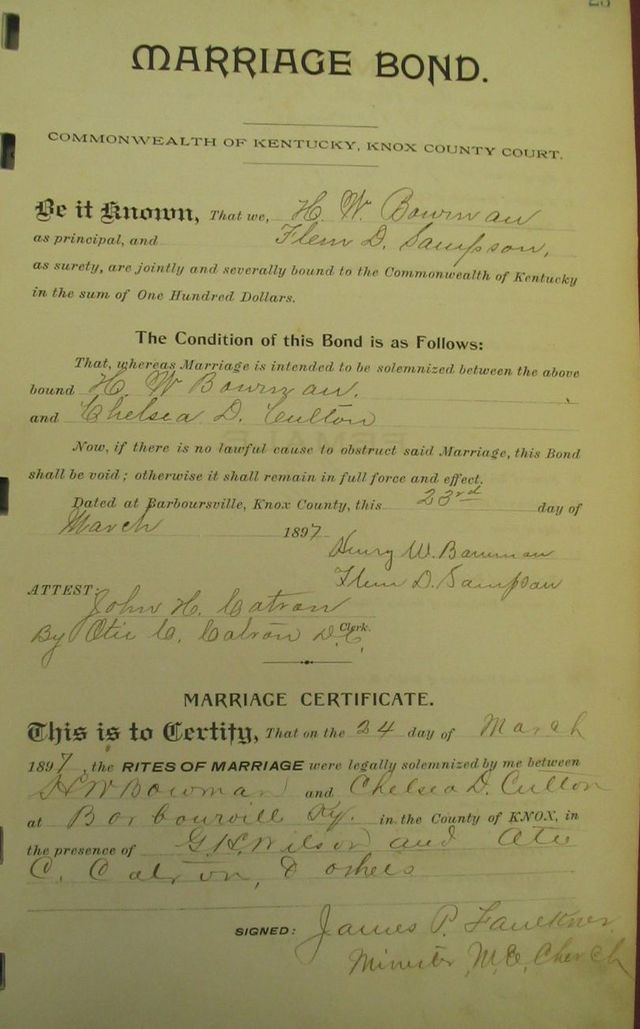 MARRIAGE BOND.
COMMONWEALTH OF KENTUCKY, KNOX COUNTY COURT.
Be it Known, That we, H. W. Bowman
as principal, and Flem D. Sampson,
as surety, are jointly and severally bound to the Commonwealth of Kentucky
in the sum of One Hundred Dollars.
The Condition of this Bond is as Follows:
That, whereas Marriage is intended to be solemnized between the above
bound H. W Bowman.
and Chelsea D. Culton
Now, if there is no lawful cause to obstruct said Marriage, this Bond
shall be void; otherwise it shall remain in full force and effect.
Dated at Barboursville, Knox County, this 23rd day of
March 1897
Henry W. Bowman
Flem D. Sampson
ATTEST:
John H. Catron
Clerk.
By Otie C. Catron D.C.
MARRIAGE CERTIFICATE.
This is to Certify, That on the 24 day of March
1897, the RITES OF MARRIAGE were legally solemnized by me between
H W Bowman and Chelsea D. Culton
at Borbourvill Ky. in the County of KNOX, in
the presence of G. H. Wilson and Otie
C. Catron, & others
SIGNED: James P. Faulkner
Minister, M.E. Church